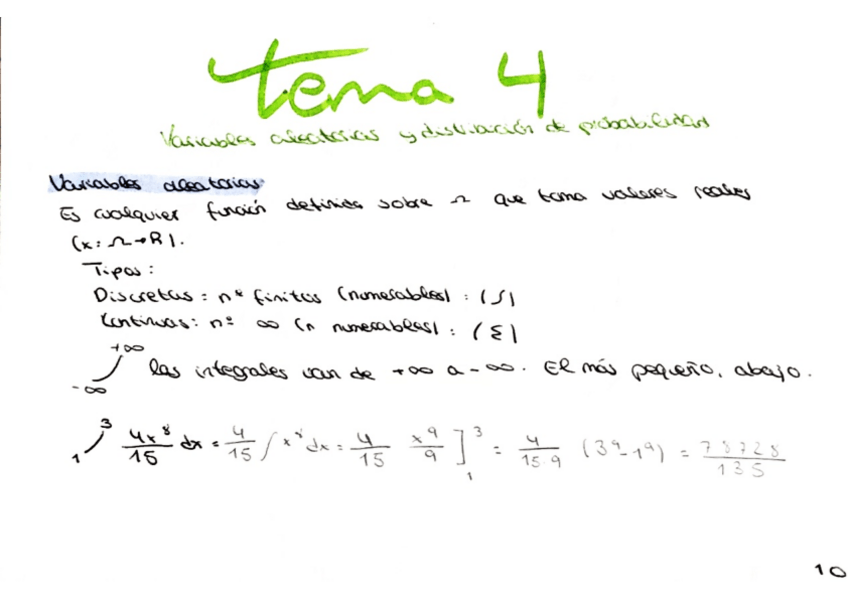 tema 4
Variables aleatorias y distribución de probabilidad
Variables aleatorias
Es cualquier función definida sobre Ω que toma valores reales
(x: Ω→R).
Tipos:
Discretas: nº finitos (numerables) : (∫)
Continuas: nº ∞ (n numerables) : (Σ)
∫ +∞ -∞ las integrales van de +∞ a -∞. El más pequeño, abajo.
1∫3 4x⁸/15 dx = 4/15 ∫ x⁸ dx = 4/15 x⁹/9 ]³₁ = 4/15·9 (3⁹-1⁹) = 78728/135
10